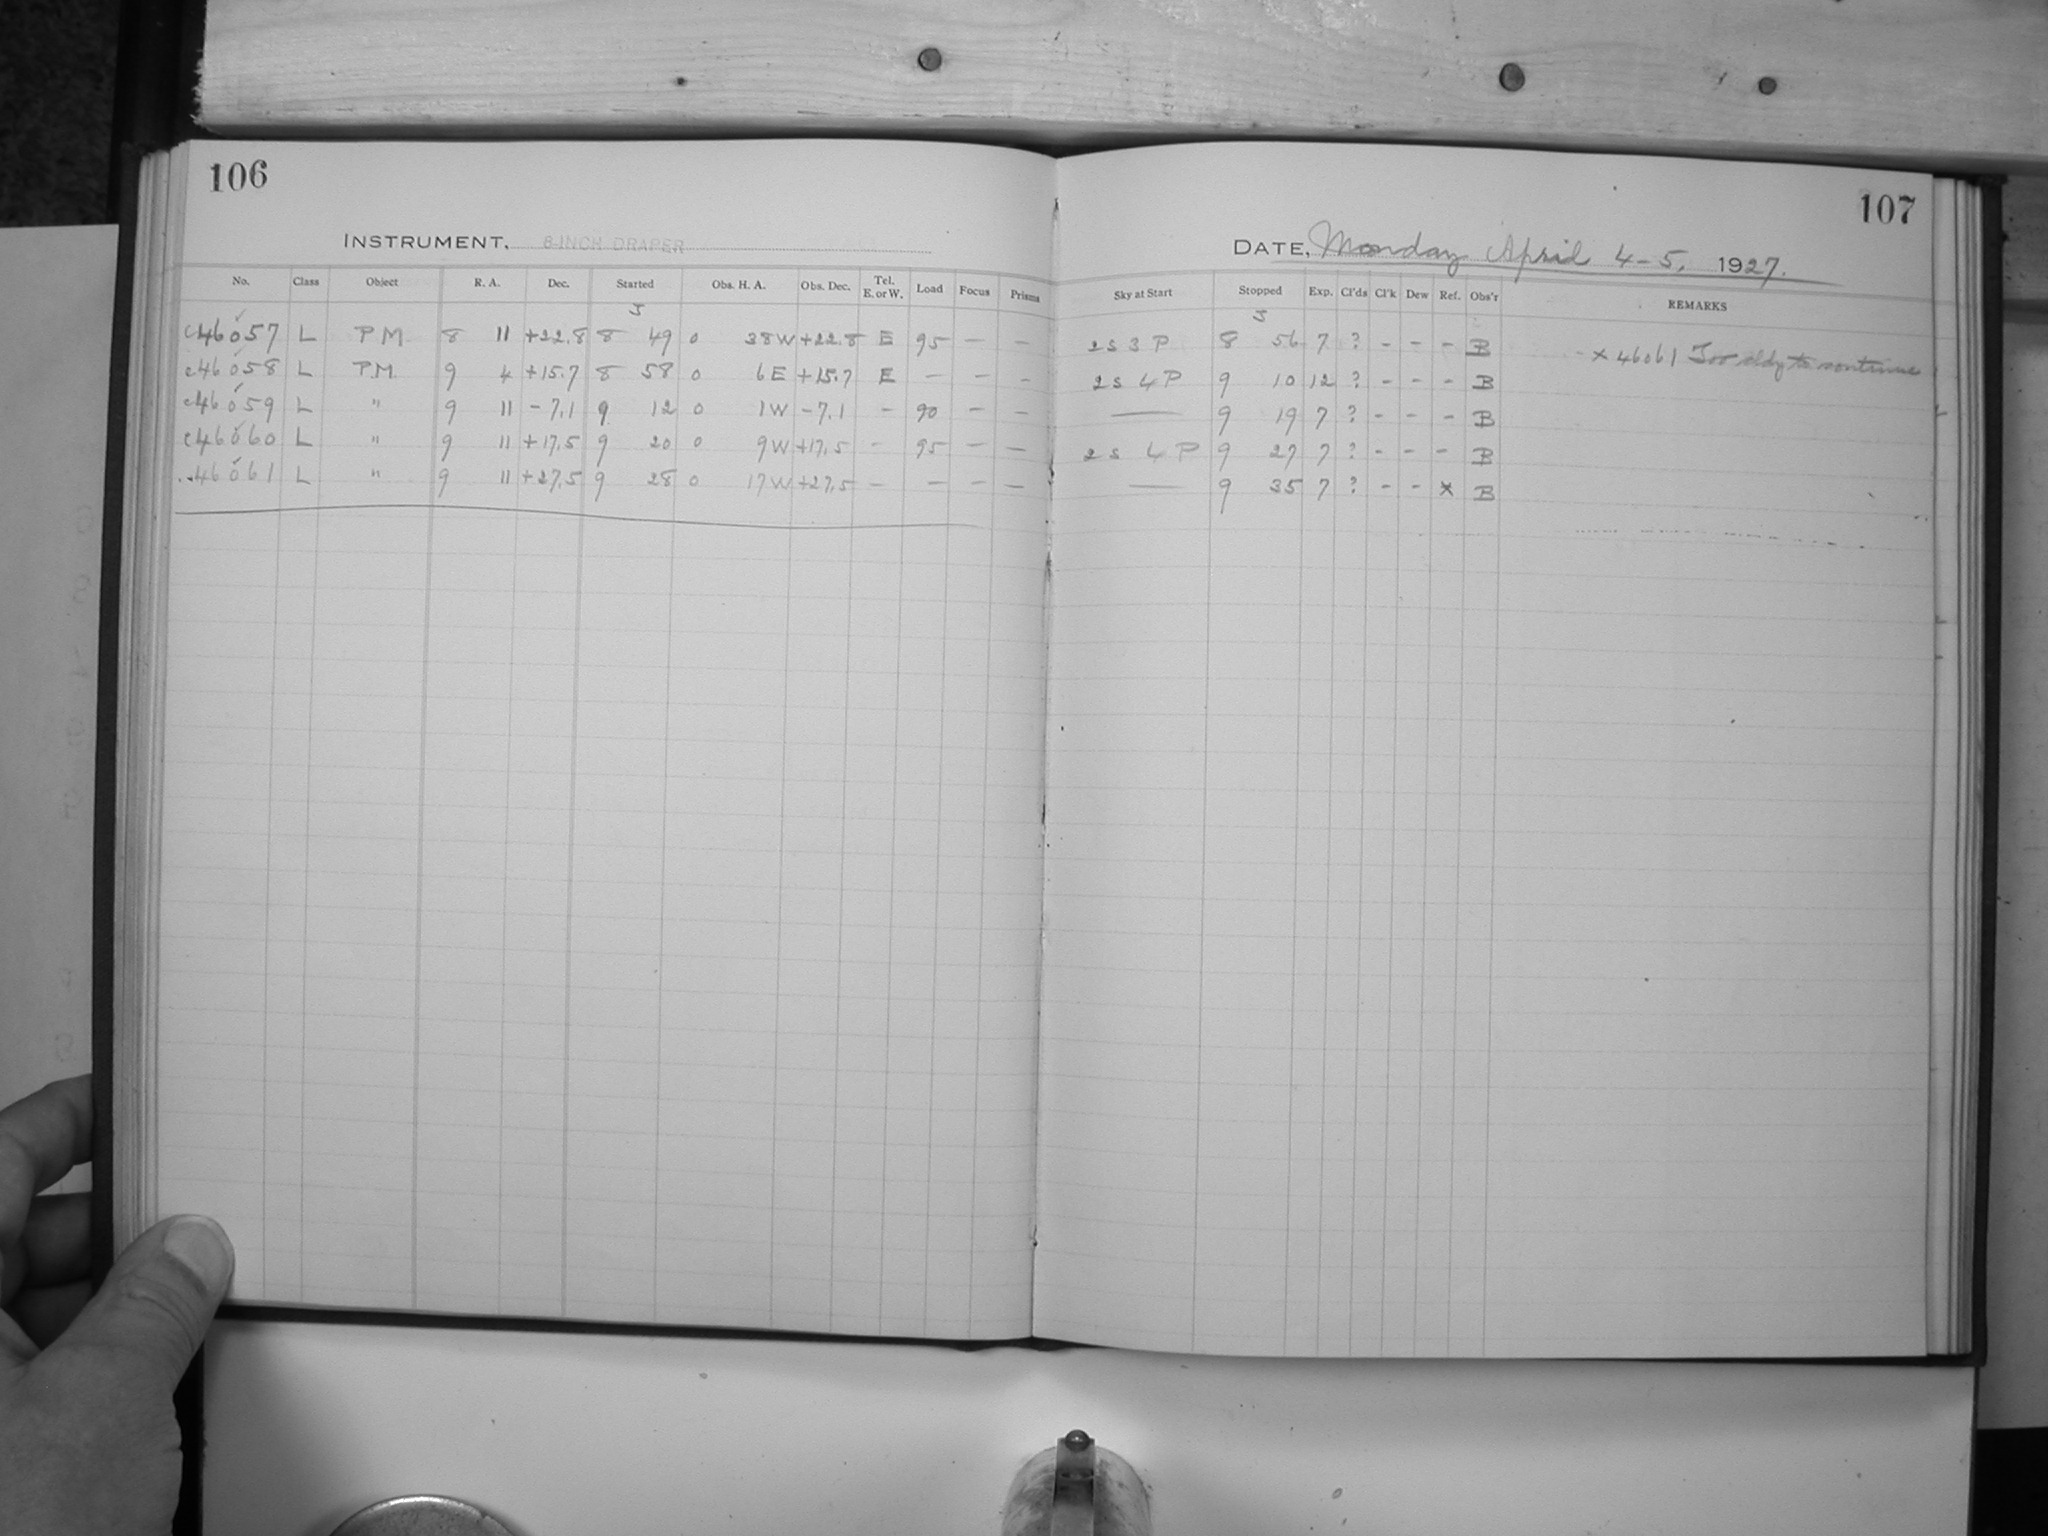 106
INSTRUMENT, 8-INCH DRAPER
No. Class Object R. A. Dec. Started Obs. H. A. Obs. Dec. Tel. E. or W. Load Focus Prisms
c46057 L P M 8 11 +22.8 8 49 0 38W +22.8 E 95 — —
c46058 L P.M. 9 4 +15.7 8 58 0 6E +15.7 E — — —
c46059 L " 9 11 -7.1 9 12 0 1W -7.1 - 90 — —
c46060 L " 9 11 +17.5 9 20 0 9W +17.5 - 95 — —
46061 L " 9 11 +27.5 9 28 0 17W +27.5 — — — —
107
DATE, Monday April 4-5, 1927.
Sky at Start Stopped Exp. Cl'ds Cl'k Dew Ref. Obs'r REMARKS
2s 3 P 8 56 7 ? - - - B x 46061 Too cldy to continue
2s 4 P 9 10 12 ? - - - B
— 9 19 7 ? - - - B
2s 4 P 9 27 7 ? - - - B
— 9 35 7 ? - - x B